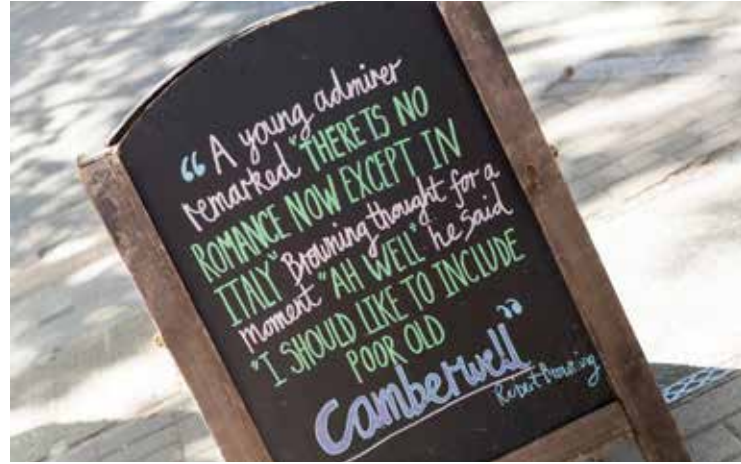 “ A young admirer
remarked "THERE IS NO
ROMANCE NOW EXCEPT IN
ITALY" Browning thought for a
moment "AH WELL" he said
"I SHOULD LIKE TO INCLUDE
POOR OLD
Camberwell ”
Robert Browning